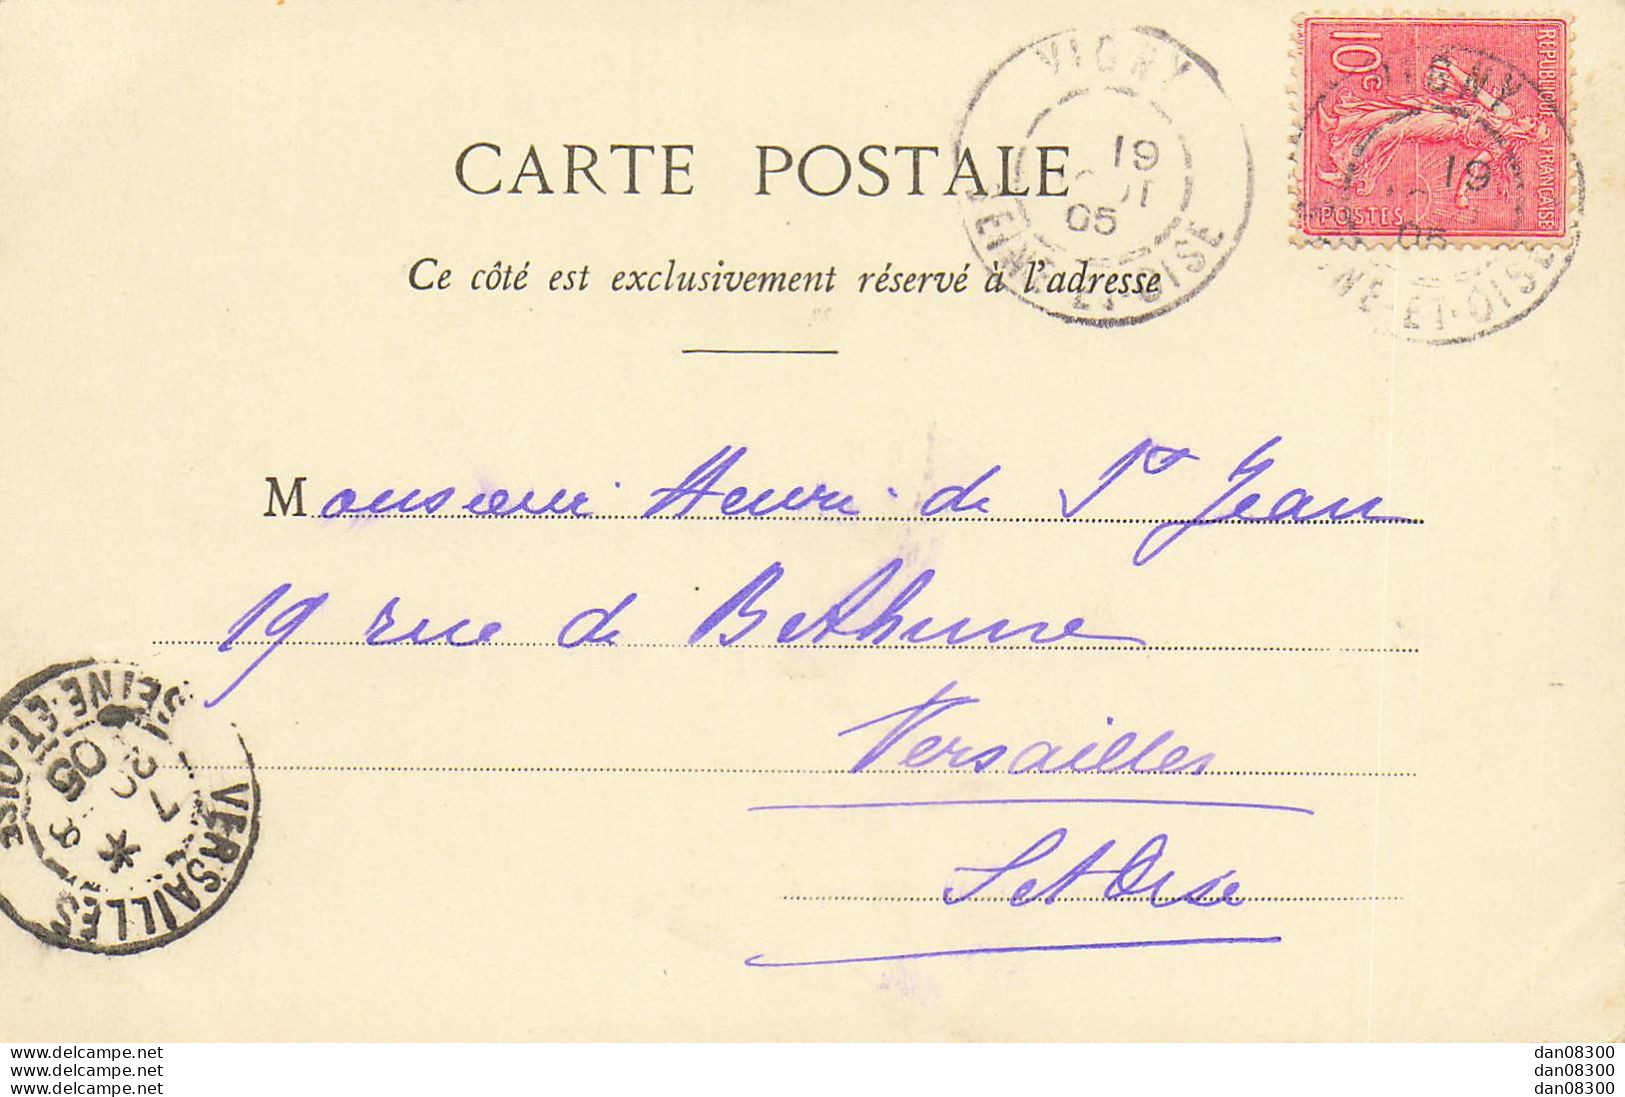 VIGNY
19
05
SEINE-ET-OISE
RÉPUBLIQUE FRANÇAISE
10c
POSTES
VIGNY
19
05
SEINE-ET-OISE
CARTE POSTALE
Ce côté est exclusivement réservé à l'adresse
Monsieur Henri de St Jean
19 rue de Bethune
Versailles
S et Oise
VERSAILLES
7
20
05
SEINE-ET-OISE
www.delcampe.net
www.delcampe.net
www.delcampe.net
dan08300
dan08300
dan08300